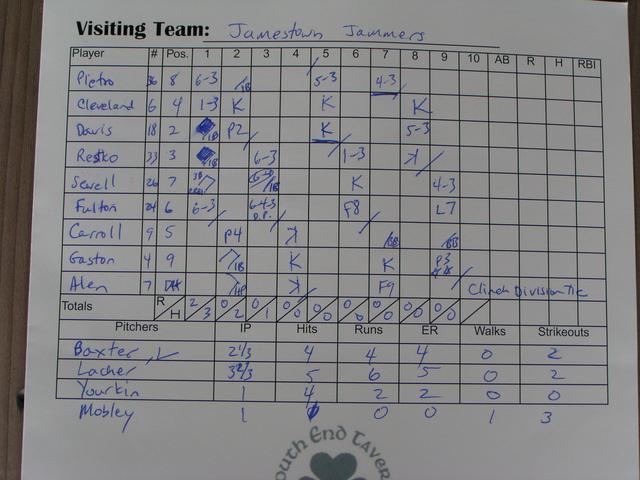 Visiting Team: Jamestown Jammers
Player # Pos. 1 2 3 4 5 6 7 8 9 10 AB R H RBI
Pietro 36 8 6-3 1B 5-3 4-3
Cleveland 6 4 1-3 K K K
Davis 18 2 1B P2 K 5-3
Restko 33 3 1B 6-3 1-3 K
Sewell 26 7 1B K 4-3
Fulton 24 6 6-3 6-4-3 D.P. F8 L7
Carroll 9 5 P4 K BB BB
Gaston 4 9 1B K K P3
Alen 7 DH HP K F9 Clinch Division Tie
Totals R H 2 3 0 2 0 1 0 0 0 0 0 0 0 0 0 0
Pitchers IP Hits Runs ER Walks Strikeouts
Baxter, L 2 1/3 4 4 4 0 2
Lacher 3 2/3 5 6 5 0 2
Yourkin 1 4 2 2 0 0
Mobley 1 0 0 1 3
South End Taver